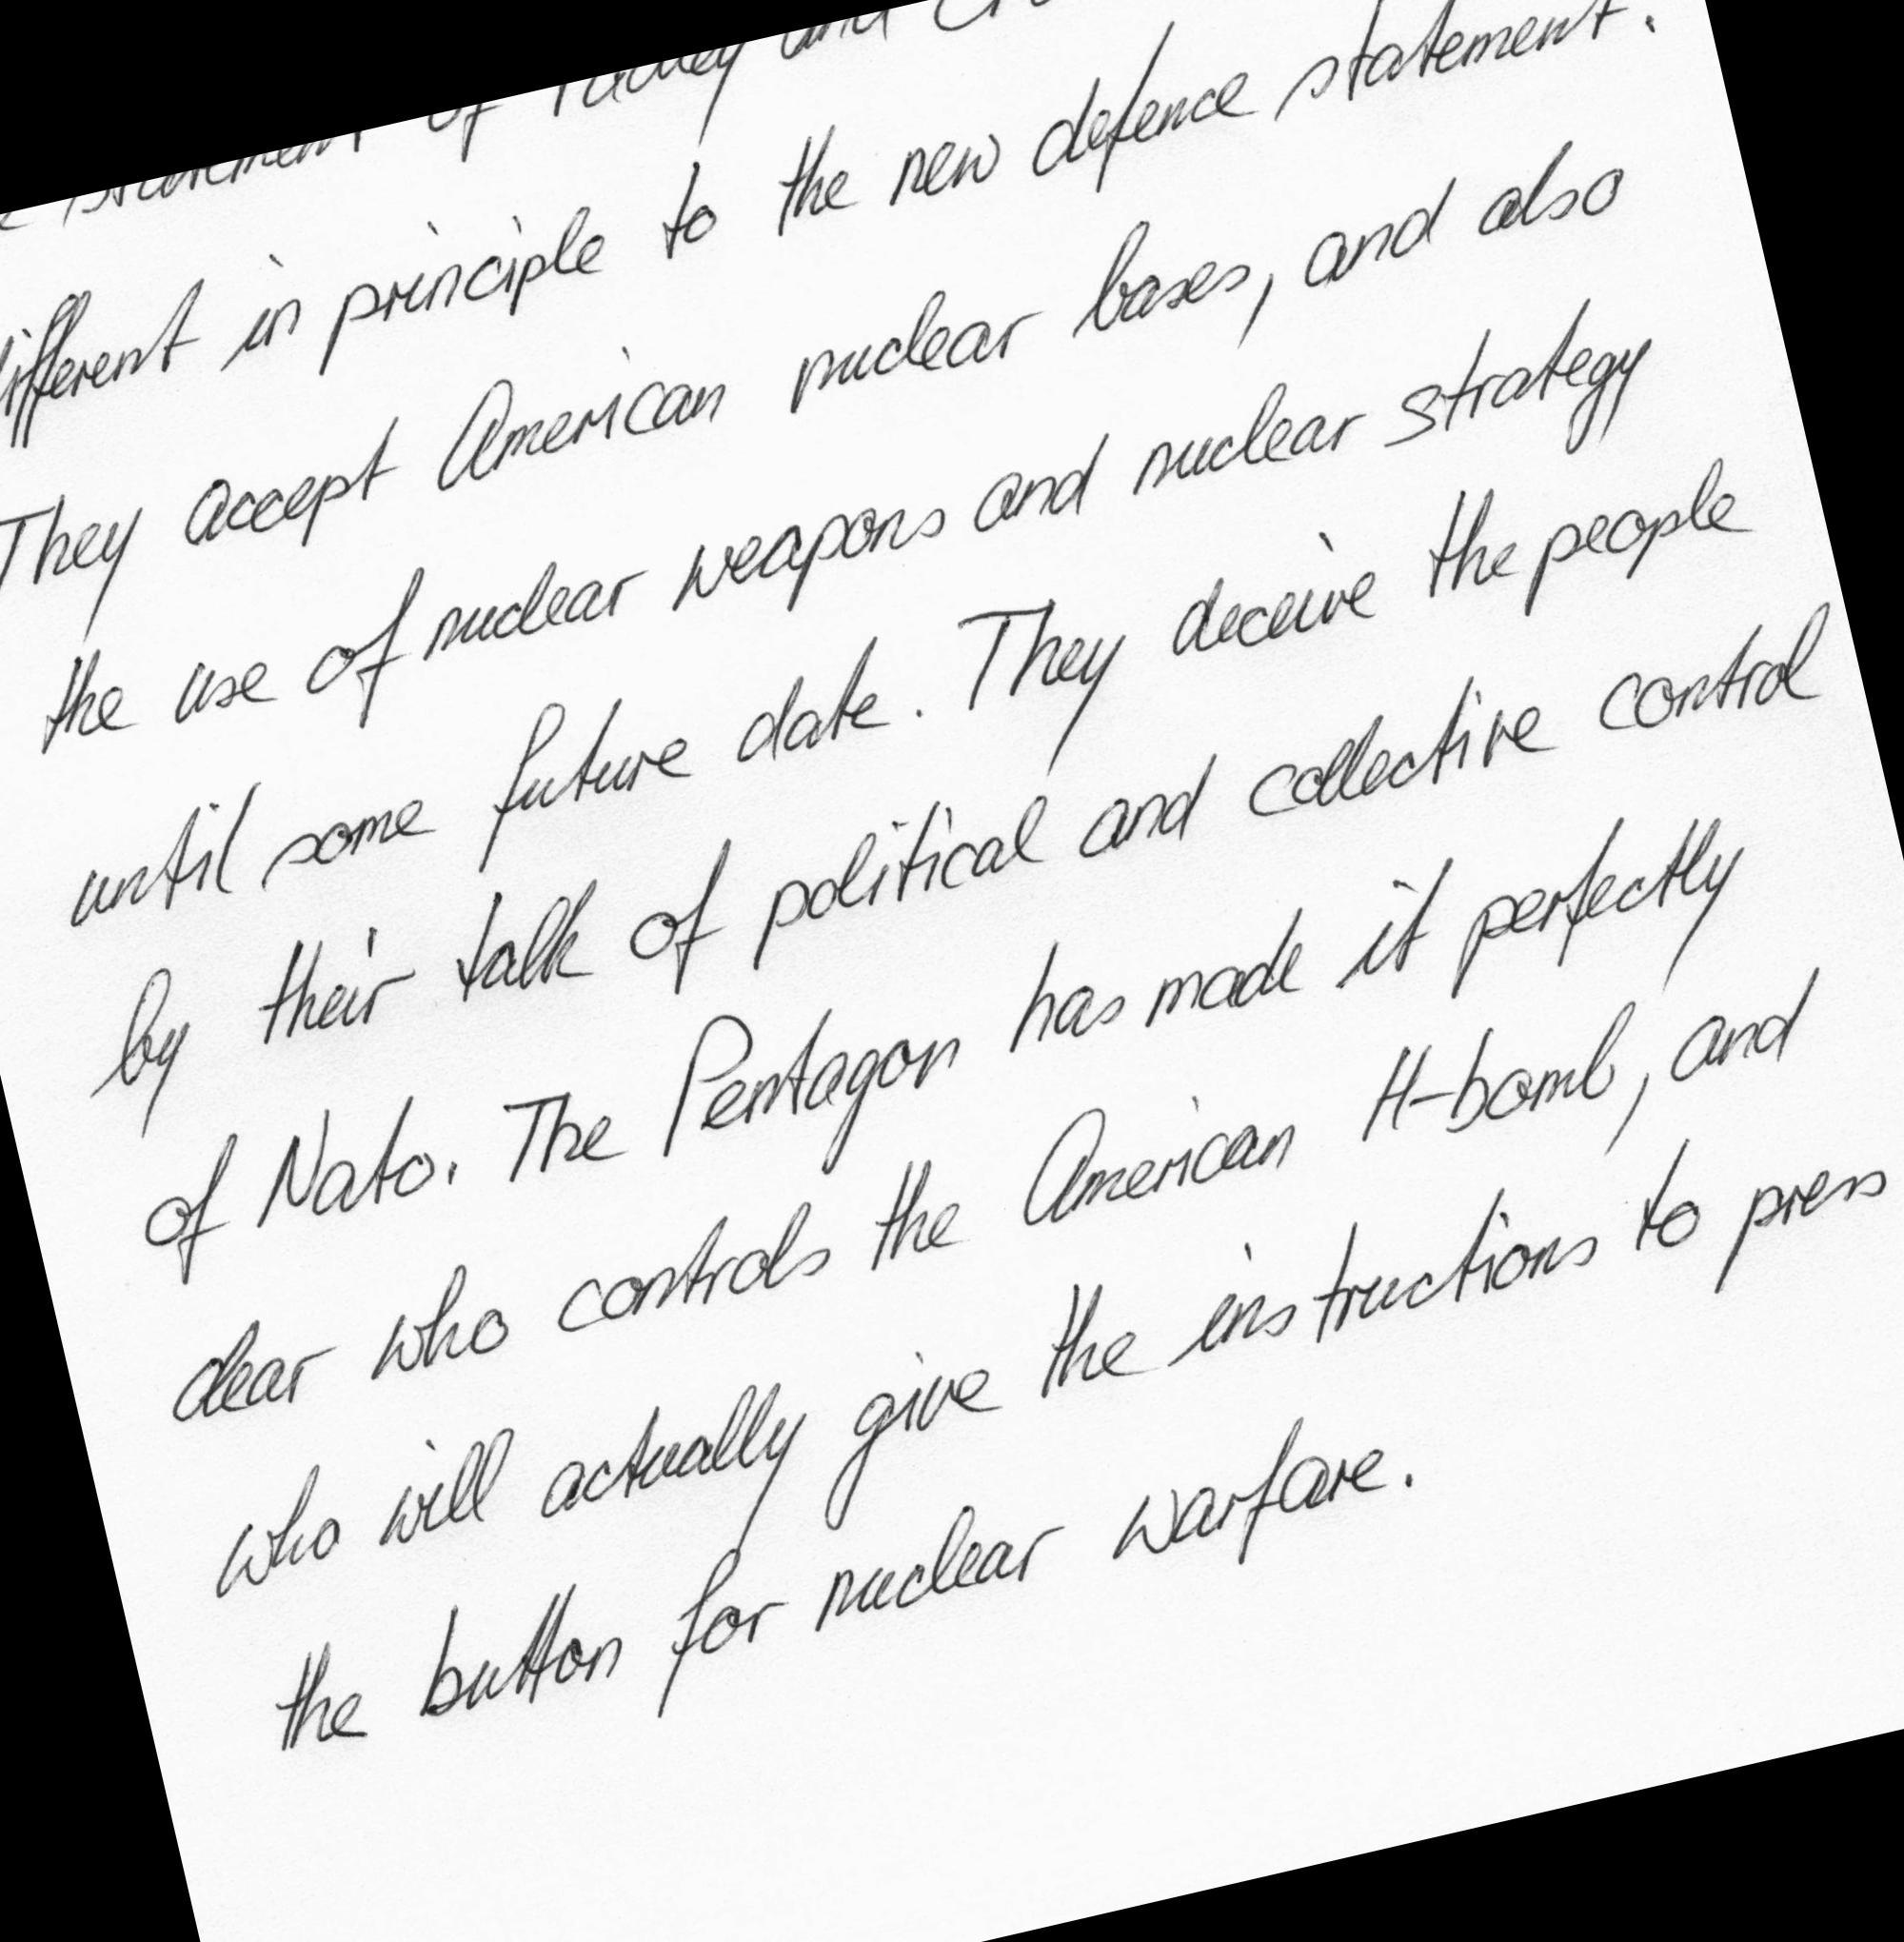 statement of Padley and
different in principle to the new defence statement.
They accept American nuclear bases, and also
the use of nuclear weapons and nuclear strategy
until some future date. They deceive the people
by their talk of political and collective control
of Nato. The Pentagon has made it perfectly
clear who controls the American H-bomb, and
who will actually give the instructions to press
the button for nuclear warfare.